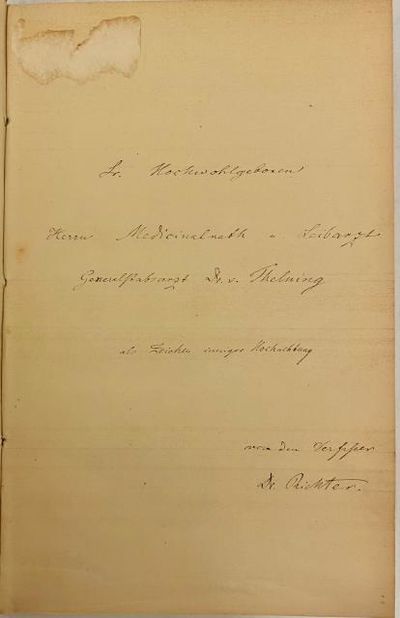 Sr. Hochwohlgeboren
Herrn Medicinalrath u. Leibarzt
Generalstabsarzt Dr. v. Thelning
als Zeichen inniger Hochachtung
von dem Verfasser
Dr. Richter.